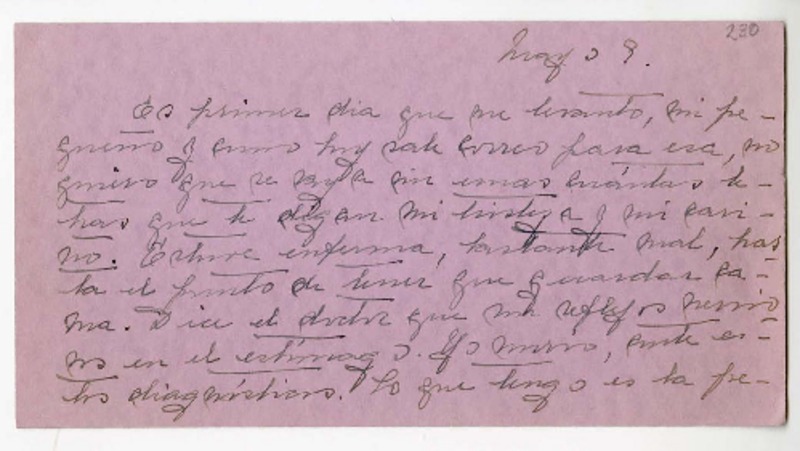 230
Mayo 9.
Es primer dia que me levanto, mi pe-
queño y como hoy sale correo para esa, no
quiero que se vaya sin unas cuántas le-
tras que te digan mi tristeza y mi cari-
ño. Estuve enferma, bastante mal, has
ta el punto de tener que guardar ca-
ma. Dice el doctor que son reflejos nervio
sos en el estómago. Yo me río, ante es-
tos diagnósticos. Lo que tengo es la pe-